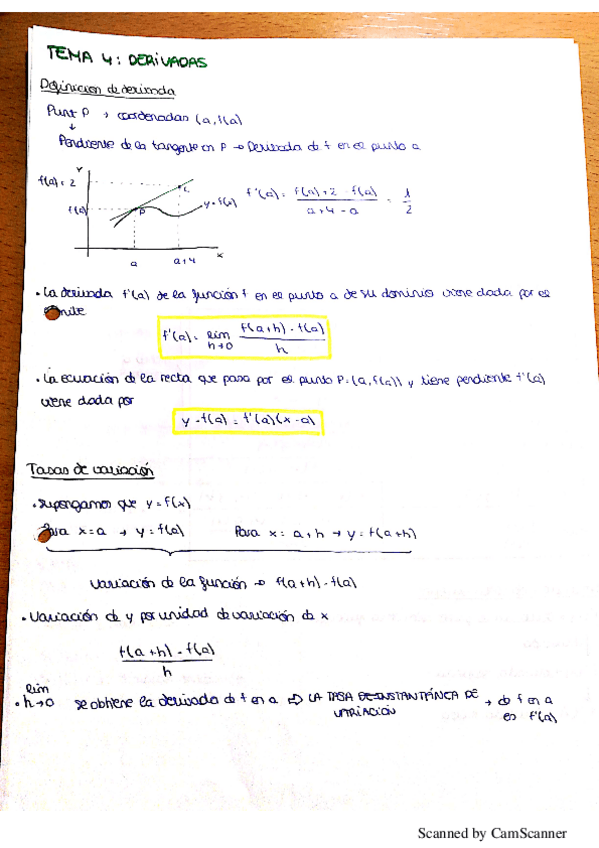 TEMA 4: DERIVADAS
Definición de derivada
Punt P → coordenadas (a, f(a)
↓
Pendiente de la tangente en P → Derivada de f en el punto a
Y
f(a)+2
f(a)
P
y=f(x)
a
a+4
x
f'(a) = f(a)+2-f(a) / a+4-a = 1/2
• La derivada f'(a) de la función f en el punto a de su dominio viene dada por el
f'(a) = lim h→0 f(a+h)-f(a) / h
• La ecuación de la recta que pasa por el punto P=(a, f(a)) y tiene pendiente f'(a)
viene dada por
y-f(a) = f'(a)(x-a)
Tasas de variación
• Supongamos que y=f(x)
Para x=a → y=f(a) Para x=a+h → y=f(a+h)
Variación de la función → f(a+h)-f(a)
• Variación de y por unidad de variación de x
f(a+h)-f(a) / h
• lim h→0 se obtiene la derivada de f en a ⇒ LA TASA INSTANTÁNEA DE → de f en a
VARIACIÓN es f'(a)
Scanned by CamScanner